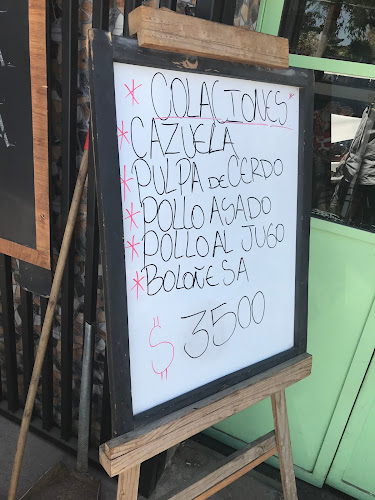 * COLACIONES *
* CAZUELA
* PULPA DE CERDO
* POLLO ASADO
* POLLO AL JUGO
* BOLOÑESA
$ 3500